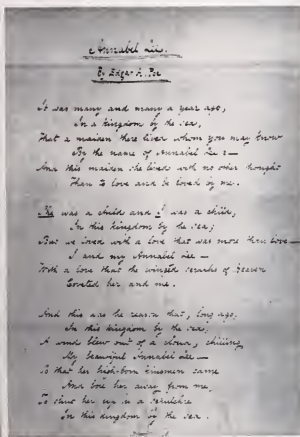 Annabel Lee.
By Edgar A. Poe
It was many and many a year ago,
In a kingdom by the sea,
That a maiden there lived whom you may know
By the name of Annabel Lee :—
And this maiden she lived with no other thought
Than to love and be loved by me.
She was a child and I was a child,
In this kingdom by the sea;
But we loved with a love that was more than love—
I and my Annabel Lee —
With a love that the wingéd seraphs of Heaven
Coveted her and me.
And this was the reason that, long ago,
In this kingdom by the sea,
A wind blew out of a cloud, chilling
My beautiful Annabel Lee —
So that her high-born kinsmen came
And bore her away from me,
To shut her up in a sepulchre
In this kingdom by the sea.